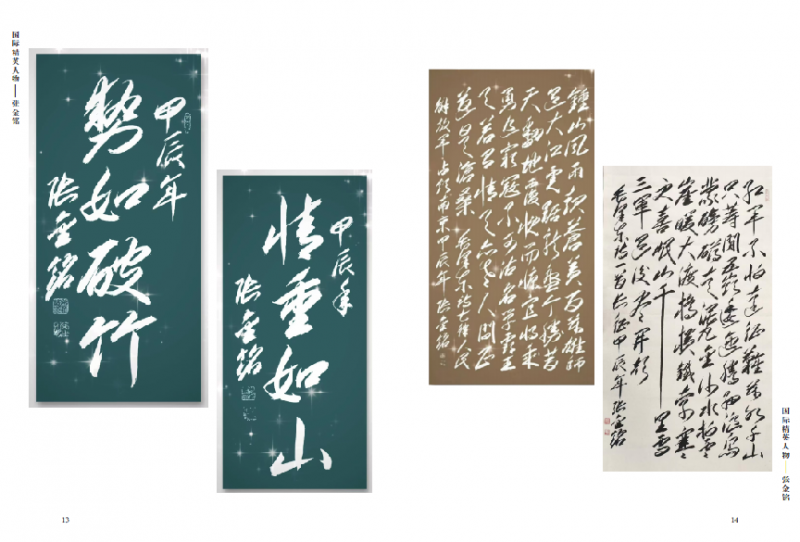 国际精英人物——张金铭
甲辰年
勢如破竹
张金銘
甲辰年
情重如山
张金銘
鍾山风雨起蒼黄百万雄师
过大江虎踞龙盘今勝昔
天翻地覆慨而慷宜将剩
勇追穷寇不可沽名学霸王
天若有情天亦老人间正
道是滄桑 毛泽东诗七律人民
解放军占领南京甲辰年张金銘
红军不怕远征難万水千山
只等闲五岭逶迤腾细浪乌
蒙磅礴走泥丸金沙水拍云
崖暖大渡橋横鐵索寒
更喜岷山千里雪
三軍过后尽开颜
毛泽东诗一首长征甲辰年张金銘
国际精英人物——张金铭
13
14